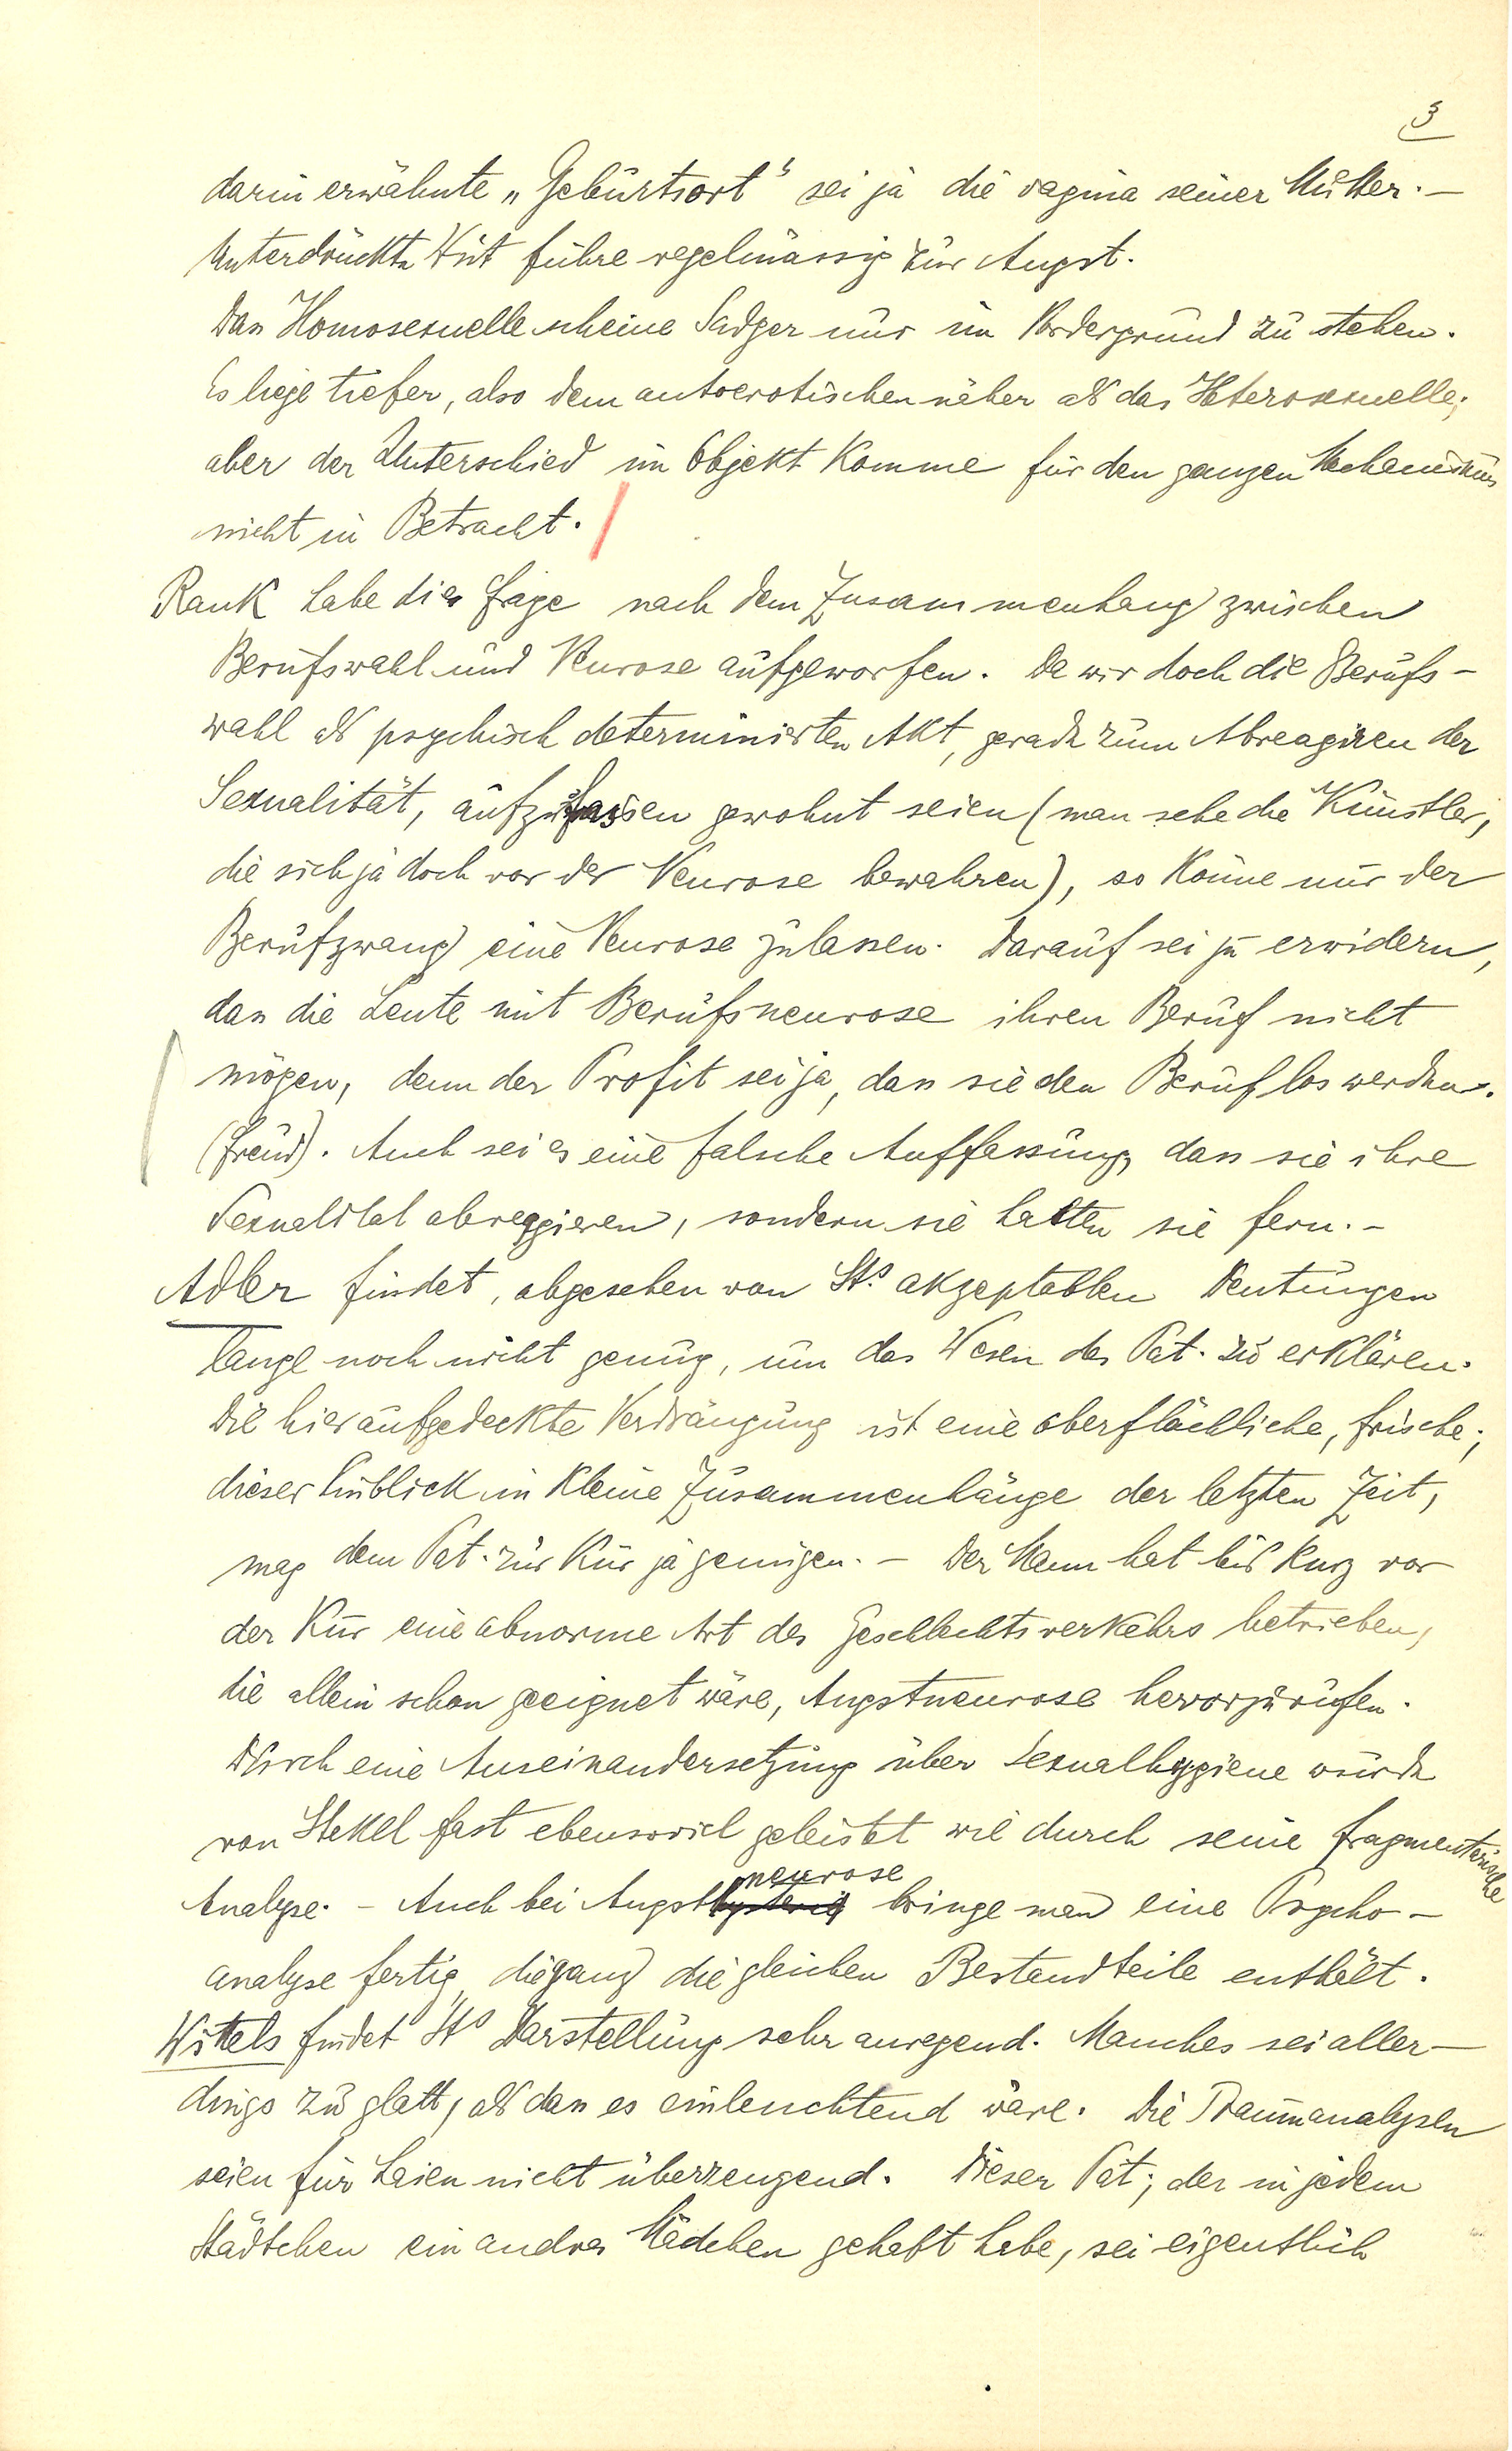 3
darin erwähnte „Geburtsort“ sei ja die vagina seiner Mutter. –
Unterdrückte Wut führe regelmässig zur Angst.
Das Homosexuelle scheine Sadger nur im Vordergrund zu stehen.
Es liege tiefer, also dem autoerotischen näher als das Heterosexuelle;
aber der Unterschied im Objekt komme für den ganzen Mechanismus
nicht in Betracht.
Rank habe die Frage nach dem Zusammenhang zwischen
Berufswahl und Neurose aufgeworfen. Da wir doch die Berufs-
wahl als psychisch determinierten Akt, gerade zum Abreagiren der
Sexualität, aufzufassen gewohnt seien (man sehe die Künstler,
die sich ja doch vor der Neurose bewahren), so könne nur der
Berufzwang eine Neurose zulassen. Darauf sei zu erwidern,
dass die Leute mit Berufsneurose ihren Beruf nicht
mögen, denn der Profit sei ja, dass sie den Beruf los werden.
(Freud). Auch sei es eine falsche Auffassung, dass sie ihre
Sexualität abreagieren, sondern sie halten sie fern. –
Adler findet, abgesehen von St.s akzeptablen Deutungen
lange noch nicht genug, um das Wesen des Pat. zu erklären.
Die hier aufgedeckte Verdrängung ist eine oberflächliche, frische;
dieser Einblick in kleine Zusammenhänge der letzten Zeit,
mag dem Pat. zur Kur ja genügen. – Der Mann hat bis kurz vor
der Kur eine abnorme Art des Geschlechtsverkehrs betrieben,
die allein schon geeignet wäre, Angstneurose hervorzurufen.
Durch eine Auseinandersetzung über Sexualhygiene wurde
von Stekel fast ebensoviel geleistet wie durch seine fragmentarische
Analyse. – Auch bei Angsthysterie neurose bringe man eine Psycho-
analyse fertig, die ganz die gleichen Bestandteile enthält.
Wittels findet St.s Darstellung sehr anregend. Manches sei aller-
dings zu glatt, als dass es einleuchtend wäre. Die Traumanalysen
seien für Laien nicht überzeugend. Dieser Pat., der in jedem
Städtchen ein andres Mädchen gehabt habe, sei eigentlich